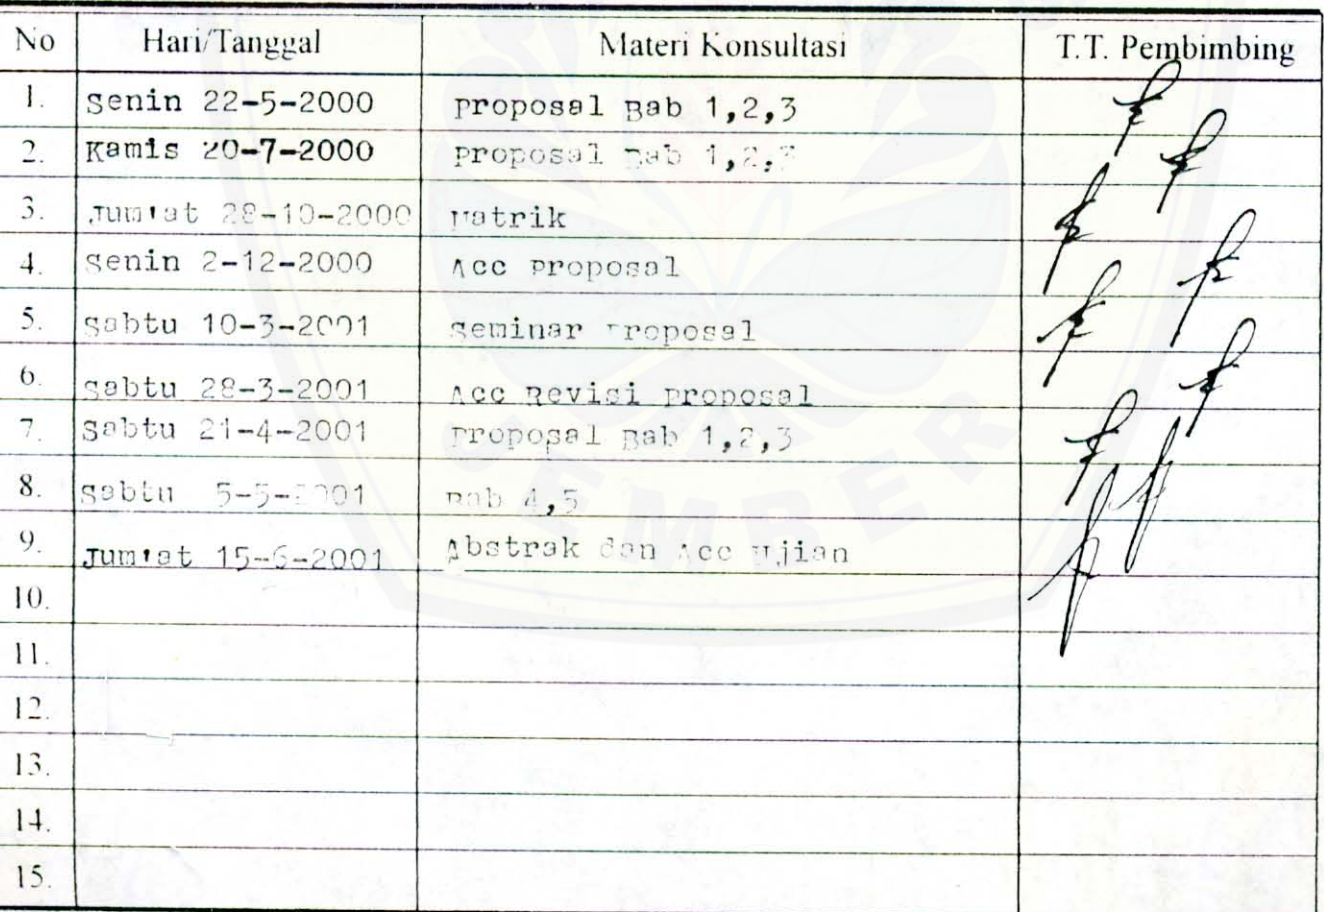 No Hari/Tanggal Materi Konsultasi T.T. Pembimbing
1. Senin 22-5-2000 Proposal Bab 1,2,3
2. Kamis 20-7-2000 Proposal Bab 1,2,3
3. Jum'at 28-10-2000 Matrik
4. Senin 2-12-2000 Acc Proposal
5. Sabtu 10-3-2001 Seminar Proposal
6. Sabtu 28-3-2001 Acc Revisi Proposal
7. Sabtu 21-4-2001 Proposal Bab 1,2,3
8. Sabtu 5-5-2001 Bab 4,5
9. Jum'at 15-6-2001 Abstrak dan Acc Ujian
10.
11.
12.
13.
14.
15.
JEMBER